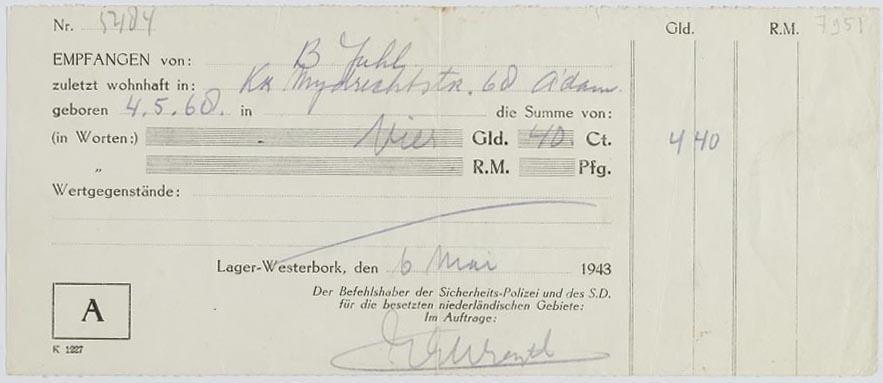 Nr. 5484 Gld. R.M. 7951
EMPFANGEN von: B
zuletzt wohnhaft in: Kr Mydrechtstr. 60 A'dam.
geboren 4.5.60. in die Summe von:
(in Worten:) Vier Gld. 40 Ct. 4 40
„ R.M. Pfg.
Wertgegenstände:
Lager-Westerbork, den 6 Mai 1943
Der Befehlshaber der Sicherheits-Polizei und des S.D.
für die besetzten niederländischen Gebiete:
Im Auftrage:
A
K 1227